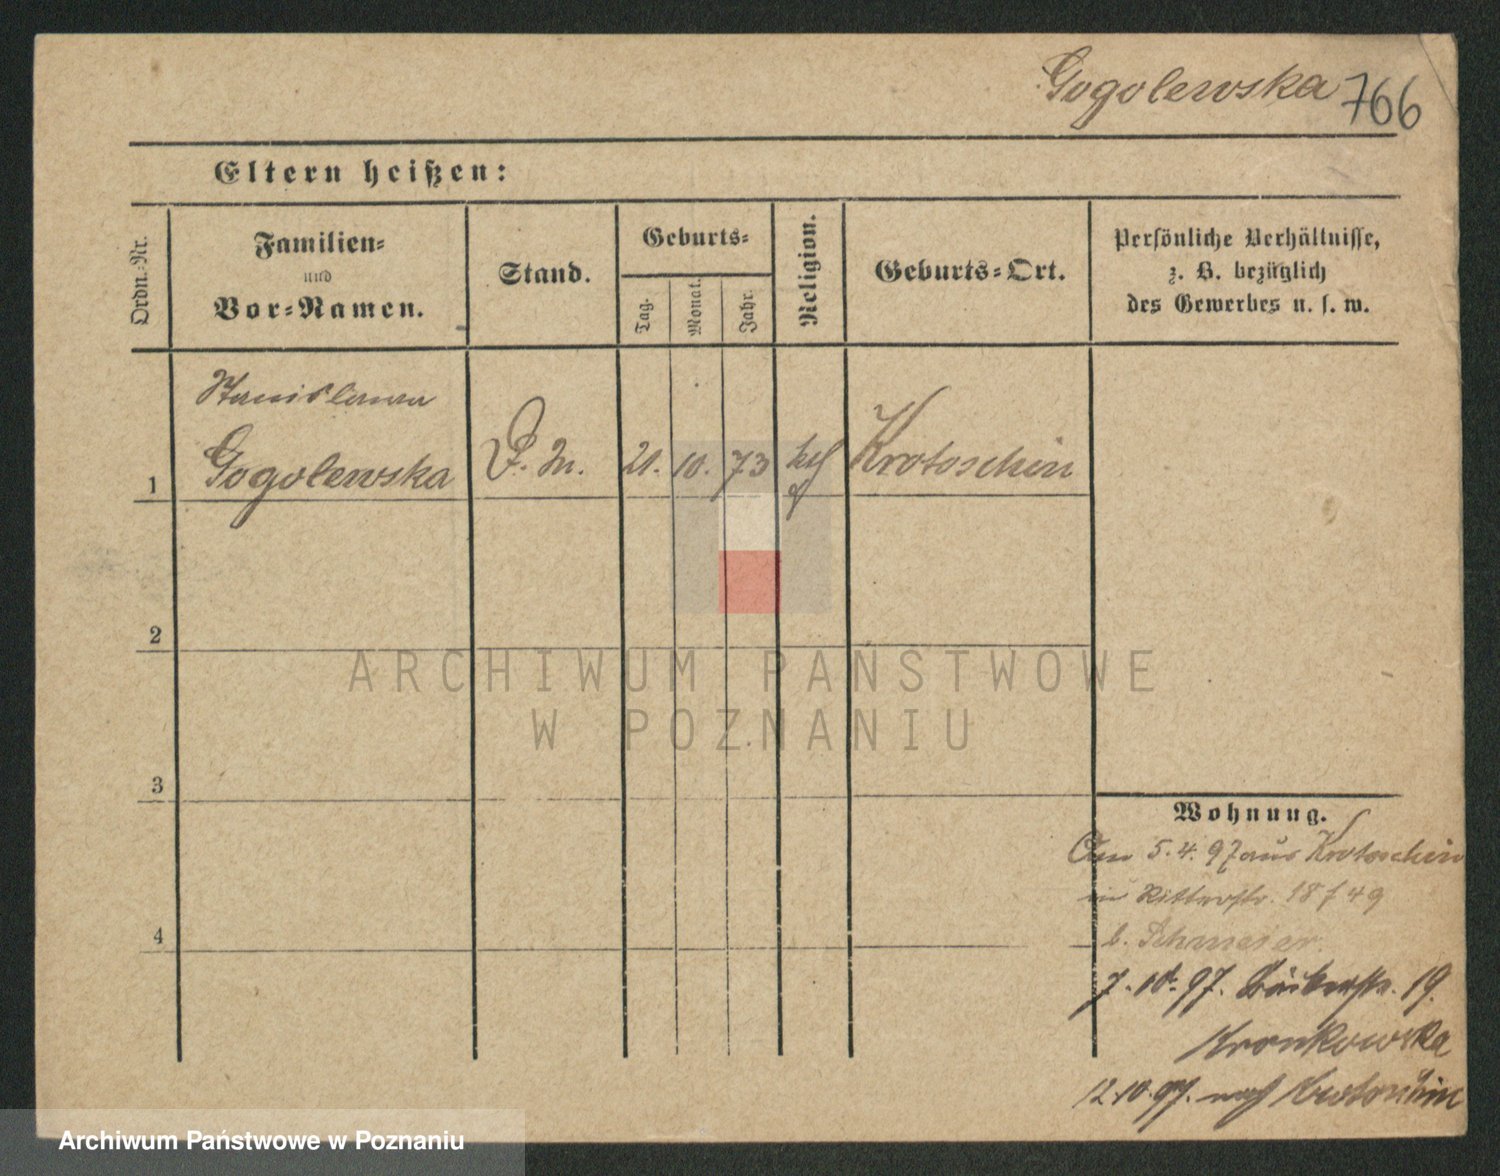 Gogolewska 766
Eltern heißen:
Ordn.-Nr.
Familien-
und
Vor-Namen.
Stand.
Geburts-
Tag.
Monat.
Jahr.
Religion.
Geburts-Ort.
Persönliche Verhältnisse,
z. B. bezüglich
des Gewerbes u. s. w.
Stanislawa
1 Gogolewska D. M. 21. 10. 73 kth Krotoschin
2
3
4
ARCHIWUM PAŃSTWOWE
W POZNANIU
Wohnung.
Am 5.4.97 aus Krotoschin
in Ritterstr. 18/49
b. Schmeier.
7.10.97. Bäckerstr. 19.
Kronkowska
12.10.97. nach Krotoschin
Archiwum Państwowe w Poznaniu